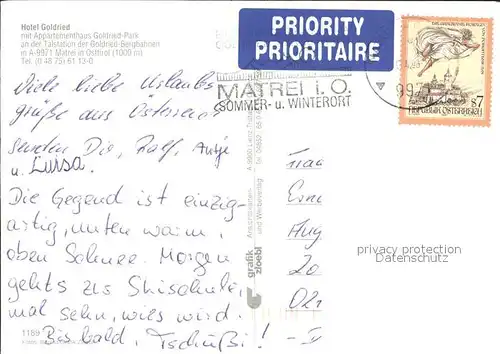 Hotel Goldried
mit Appartementhaus Goldried-Park
an der Talstation der Goldried-Bergbahnen
in A-9971 Matrei in Osttirol (1000 m)
Tel. (0 48 75) 61 13-0
PRIORITY
PRIORITAIRE
MATREI i. O.
SOMMER- u. WINTERORT
997
REPUBLIK ÖSTERREICH
S7
Viele liebe Urlaubs
grüße aus Österreich
senden Die, Ralf, Antje
u. Luisa.
Die Gegend ist einzig-
artig, unten warm,
oben Schnee. Morgen
gehts zus Skischule,
mal sehn, wies wird.
Bis bald, Tschüßi!
1189
Ansichtskarten-
und Werbeverlag
grafik
zloebl
A-9900 Lienz
Tel. 04852
privacy protection
Datenschutz